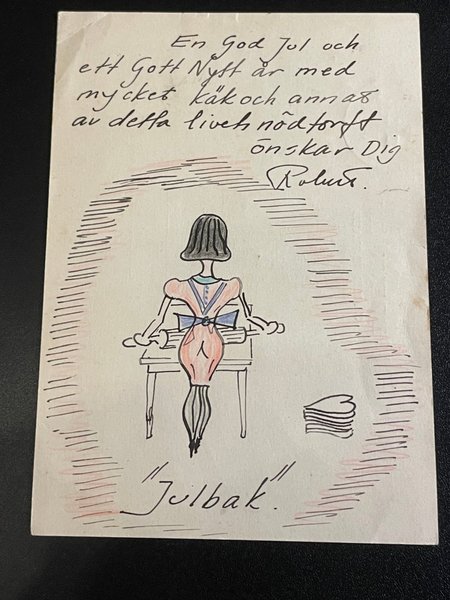 En God Jul och
ett Gott Nytt år med
mycket käk och annat
av detta livets nödtorft
önskar Dig
Robert.
"Julbak".